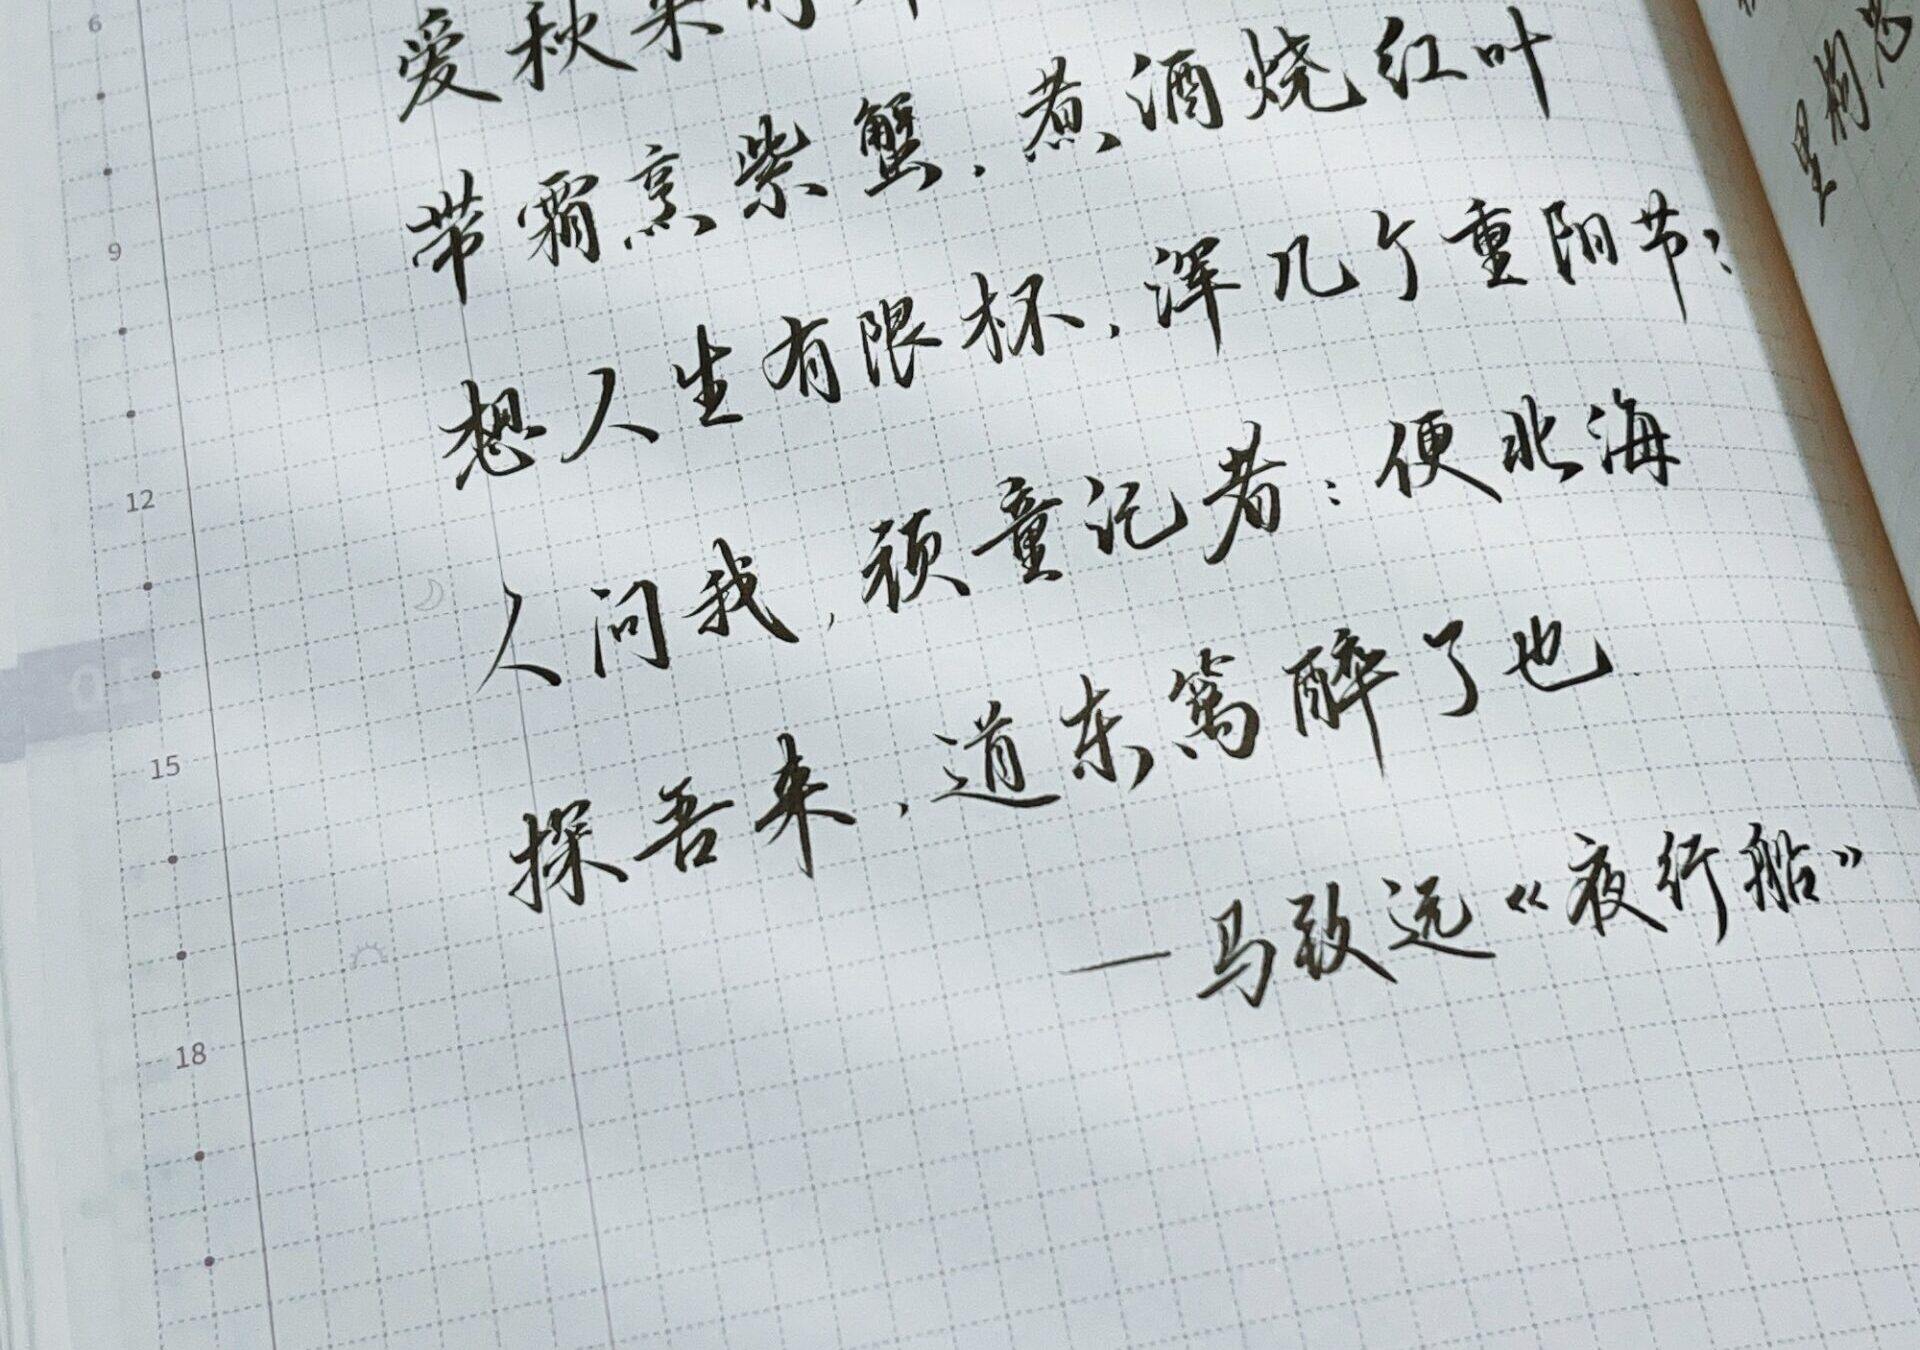 爱秋来时
带霜烹紫蟹，煮酒烧红叶
想人生有限杯，浑几个重阳节；
人问我，顽童记者：便北海
探吾来，道东篱醉了也
——马致远《夜行船》
6
9
12
15
18
05